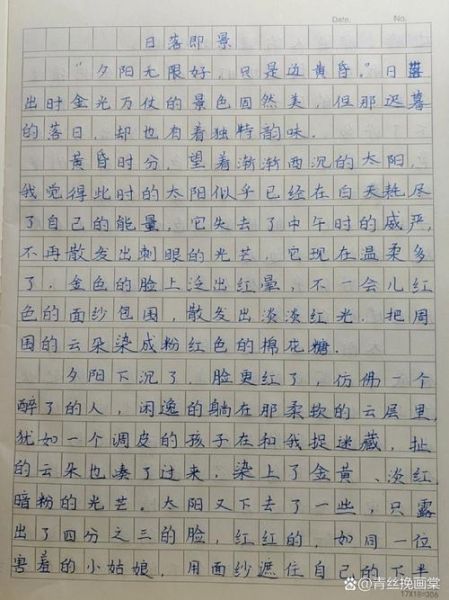 Date.    No.
日落即景
“夕阳无限好，只是近黄昏。”日
出时金光万仗的景色固然美，但那迟暮
的落日，却也有着独特韵味。
黄昏时分，望着渐渐西沉的太阳，
我觉得此时的太阳似乎已经在白天耗尽
了自己的能量，它失去了中午时的威严，
不再散发出刺眼的光芒，它现在温柔多
了，金色的脸上泛出红晕，不一会儿红
色的面纱包围，散发出淡淡红光，把周
围的云朵染成粉红色的棉花糖．
夕阳下沉了，脸更红了，仿佛一个
醉了的人，闲逸的躺在那柔软的云层里，
犹如一个调皮的孩子在和我捉迷藏，扯
的云朵也凑了过来，染上了金黄、淡红，
暗粉的光芒．太阳又下去了一些，只露
出了四分之三的脸，红红的，如同一位
害羞的小姑娘，用面纱遮住自己的下半
头条 @青丝挽画棠
17X18=306